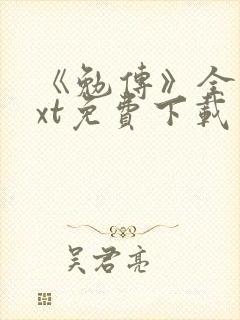 《勉傳》全
xt免費下載
吴君亮